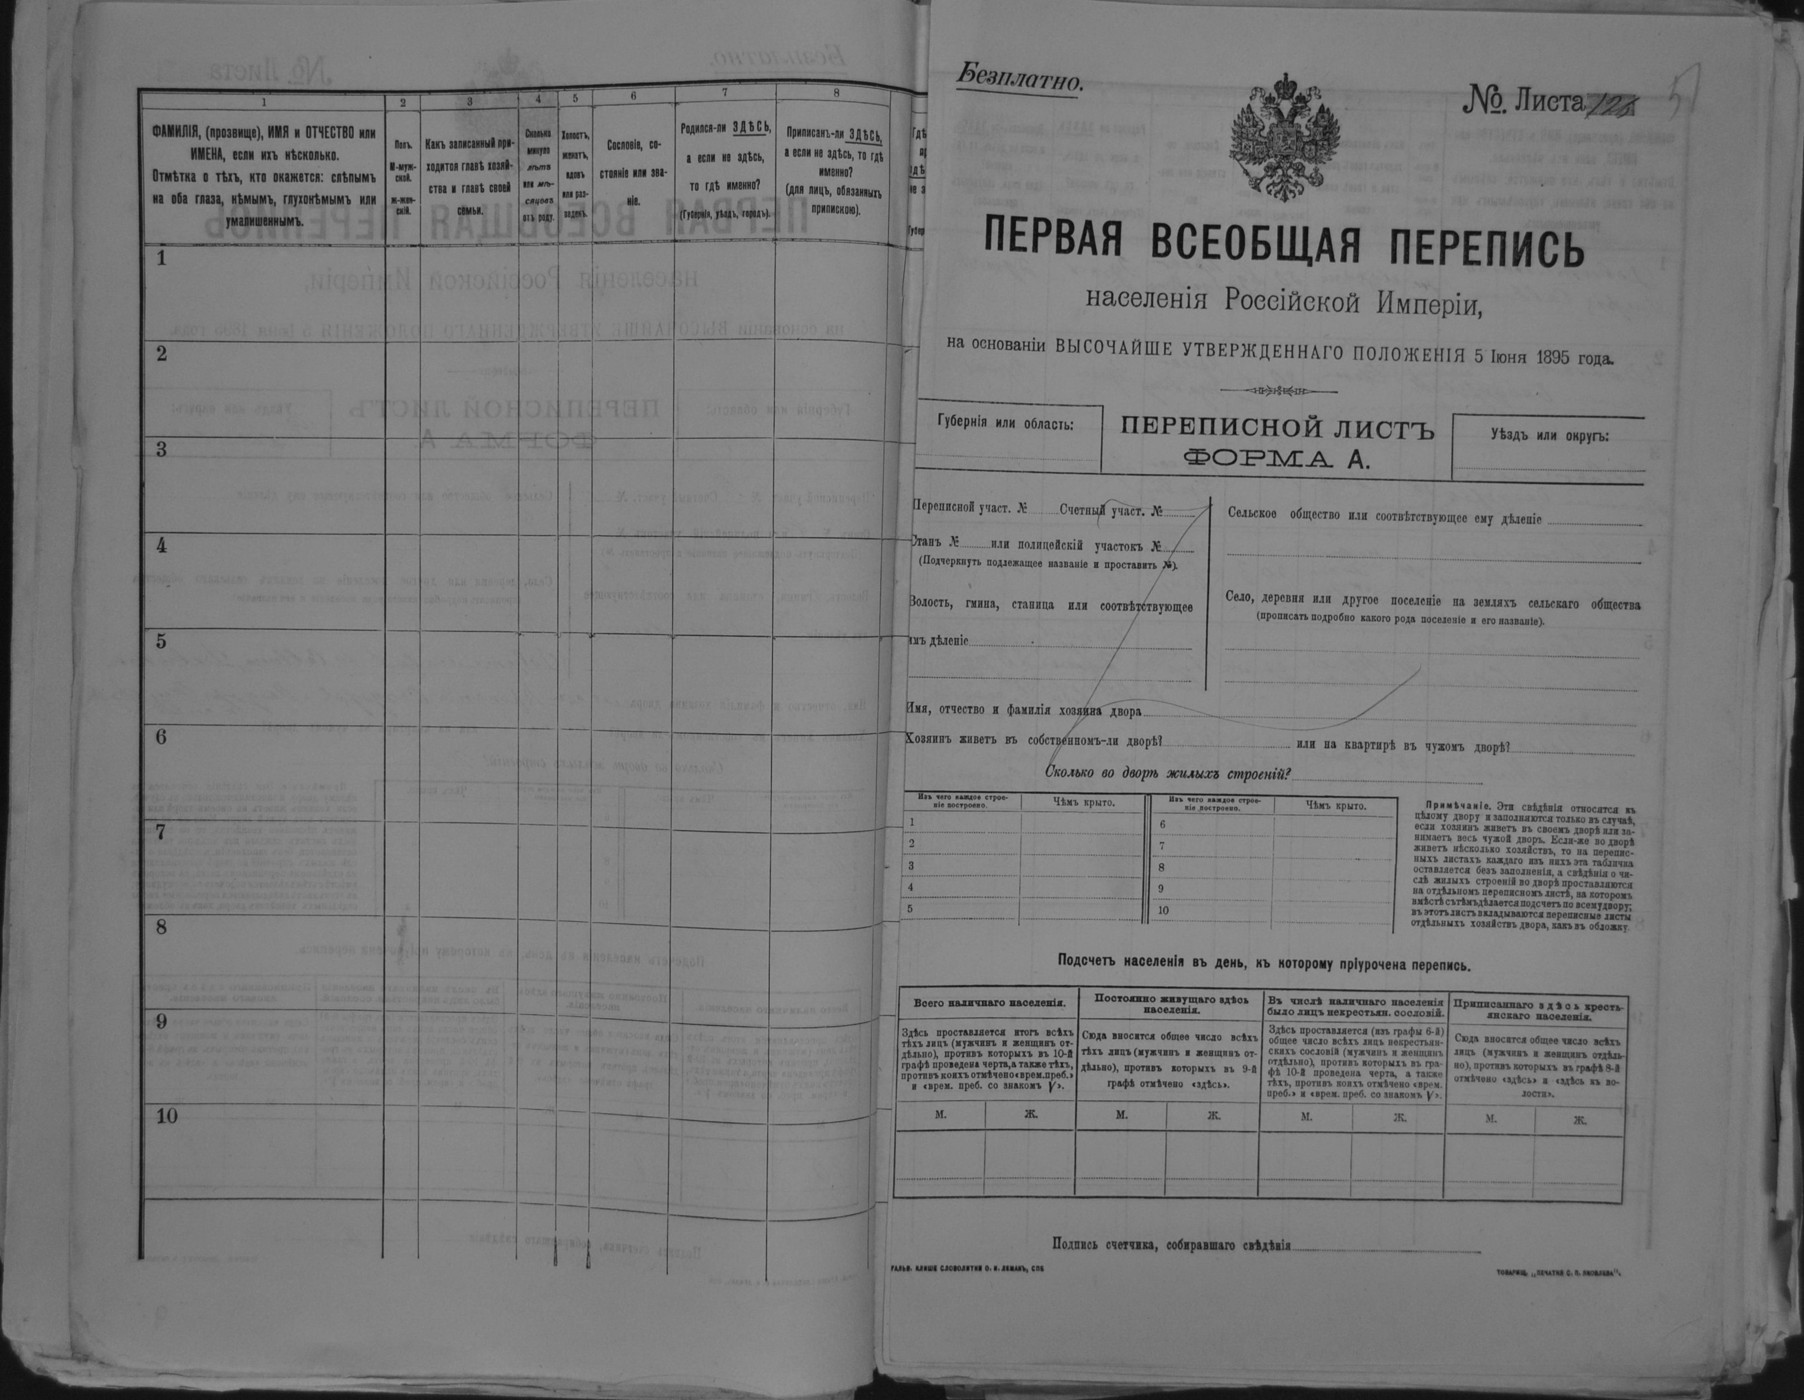 1 2 3 4 5 6 7 8
ФАМИЛІЯ, (прозвище), ИМЯ и ОТЧЕСТВО или
ИМЕНА, если ихъ нѣсколько.
Отмѣтка о тѣхъ, кто окажется: слѣпымъ
на оба глаза, нѣмымъ, глухонѣмымъ или
умалишеннымъ.
Полъ.
М-муж-
ской.
ж-жен-
скій.
Какъ записанный при-
ходится главѣ хозяй-
ства и главѣ своей
семьи.
Сколько
минуло
лѣтъ
или мѣ-
сяцевъ
отъ роду.
Холостъ,
женатъ,
вдовъ
или раз-
веденъ.
Сословіе, со-
стояніе или зва-
ніе.
Родился-ли ЗДѢСЬ,
а если не здѣсь,
то гдѣ именно?
(Губернія, уѣздъ, городъ).
Приписанъ-ли ЗДѢСЬ,
а если не здѣсь, то гдѣ
именно?
(для лицъ, обязанныхъ
припискою).
1
2
3
4
5
6
7
8
9
10
Безплатно.
№. Листа 51
ПЕРВАЯ ВСЕОБЩАЯ ПЕРЕПИСЬ
населенія Россійской Имперіи,
на основаніи ВЫСОЧАЙШЕ УТВЕРЖДЕННАГО ПОЛОЖЕНІЯ 5 Іюня 1895 года.
Губернія или область:
ПЕРЕПИСНОЙ ЛИСТЪ
ФОРМА А.
Уѣздъ или округъ:
Переписной участ. № Счетный участ. №
Станъ № или полицейскій участокъ №
(Подчеркнуть подлежащее названіе и проставить №).
Волость, гмина, станица или соотвѣтствующее
имъ дѣленіе
Сельское общество или соотвѣтствующее ему дѣленіе
Село, деревня или другое поселеніе на земляхъ сельскаго общества
(прописать подробно какого рода поселеніе и его названіе).
Имя, отчество и фамилія хозяина двора
Хозяинъ живетъ въ собственномъ-ли дворѣ? или на квартирѣ въ чужомъ дворѣ?
Сколько во дворѣ жилыхъ строеній?
Изъ чего каждое строе-
ніе построено.
Чѣмъ крыто.
1
2
3
4
5
Изъ чего каждое строе-
ніе построено.
Чѣмъ крыто.
6
7
8
9
10
Примѣчаніе. Эти свѣдѣнія относятся къ
цѣлому двору и заполняются только въ случаѣ,
если хозяинъ живетъ въ своемъ дворѣ или за-
нимаетъ весь чужой дворъ. Если-же во дворѣ
живетъ нѣсколько хозяйствъ, то на перепис-
ныхъ листахъ каждаго изъ нихъ эта табличка
оставляется безъ заполненія, а свѣдѣнія о чи-
слѣ жилыхъ строеній во дворѣ проставляются
на отдѣльномъ переписномъ листѣ, на которомъ
вмѣстѣ съ тѣмъ дѣлается подсчетъ по всему двору;
въ этотъ листъ вкладываются переписные листы
отдѣльныхъ хозяйствъ двора, какъ въ обложку
Подсчетъ населенія въ день, къ которому пріурочена перепись.
Всего наличнаго населенія.
Здѣсь проставляется итогъ всѣхъ
тѣхъ лицъ (мужчинъ и женщинъ от-
дѣльно), противъ которыхъ въ 10-й
графѣ проведена черта, а также тѣхъ,
противъ коихъ отмѣчено «врем. преб.»
и «врем. преб. со знакомъ V».
М. Ж.
Постоянно живущаго здѣсь
населенія.
Сюда вносится общее число всѣхъ
тѣхъ лицъ (мужчинъ и женщинъ от-
дѣльно), противъ которыхъ въ 9-й
графѣ отмѣчено «здѣсь».
М. Ж.
Въ числѣ наличнаго населенія
было лицъ некрестьян. сословій.
Здѣсь проставляется (изъ графы 6-й)
общее число всѣхъ лицъ некрестьян-
скихъ сословій (мужчинъ и женщинъ
отдѣльно), противъ которыхъ въ гра-
фѣ 10-й проведена черта, а также
тѣхъ, противъ коихъ отмѣчено «врем.
преб.» и «врем. преб. со знакомъ V».
М. Ж.
Приписаннаго здѣсь кресть-
янскаго населенія.
Сюда вносится общее число всѣхъ
лицъ (мужчинъ и женщинъ отдѣль-
но), противъ которыхъ въ графѣ 8-й
отмѣчено «здѣсь» и «здѣсь въ во-
лости».
М. Ж.
Подпись счетчика, собиравшаго свѣдѣнія
ГАЛЬВ. КЛИШЕ СЛОВОЛИТНИ О. И. ЛЕМАНЪ, СПБ
ТОВАРИЩ. „ПЕЧАТНЯ С. П. ЯКОВЛЕВА“.